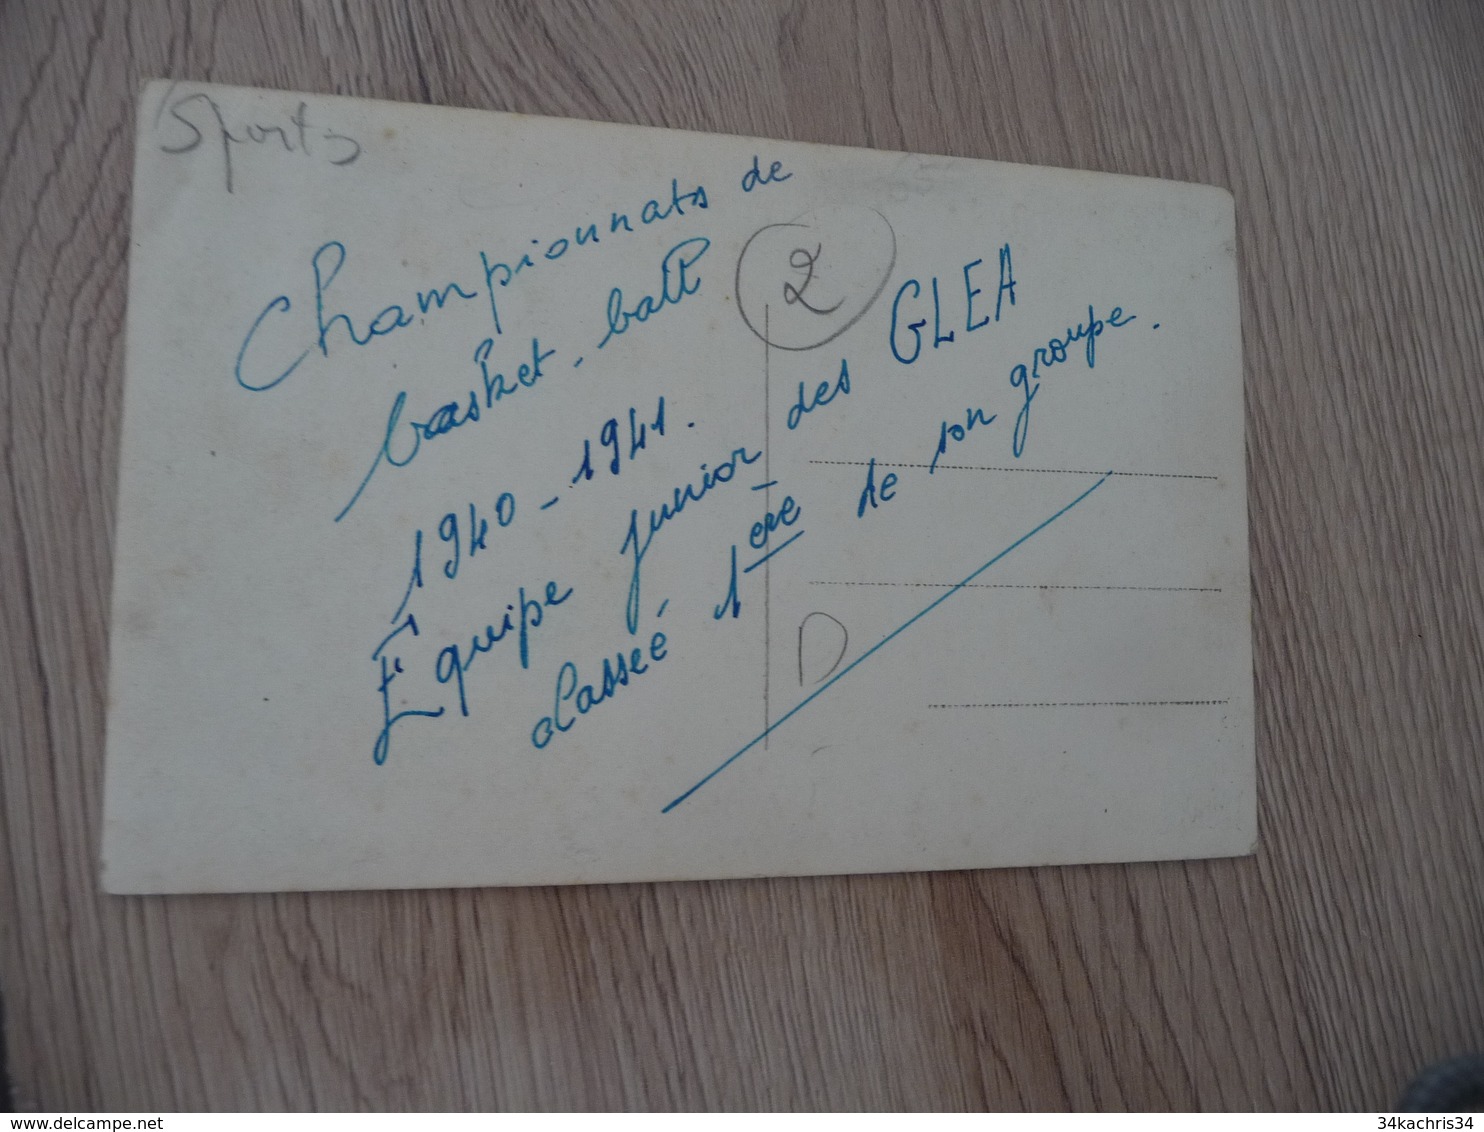 Sports
Championnats de
basket-ball
1940-1941.
Équipe junior des GLEA
classée 1ere de son groupe.
2
D
34kachris34